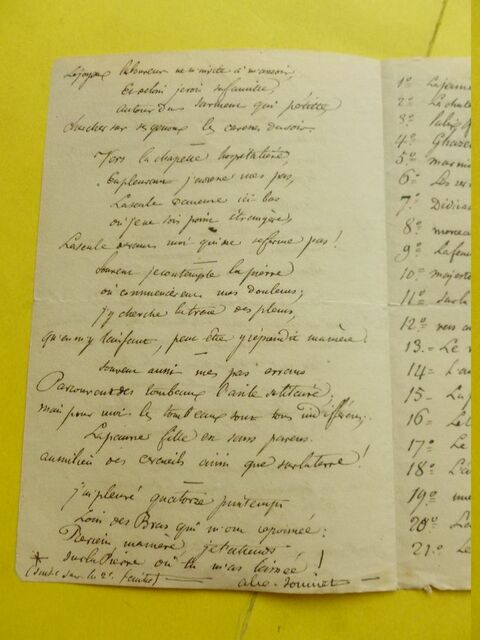 Le joyeux laboureur ne m'invite à m'asseoir,
Et de loin je vois sa famille,
autour du sarment qui pétille
chercher sur ses genoux les caresses du soir.
Vers la chapelle hospitalière,
En pleurant j'adresse mes pas,
La seule demeure ici bas
où je ne sois point étrangère,
La seule devant moi qui ne se ferme pas !
Souvent je contemple la pierre
où commencèrent mes douleurs ;
j'y cherche la trace des pleurs,
qu'en m'y laissant, peut être y répandit ma mère !
Souvent aussi mes pas errans
Parcourent des tombeaux l'asile solitaire ;
mais pour moi les tombeaux sont tous indifférens.
La pauvre fille est sans parens
au milieu des cercueils ainsi que sur la terre !
j'ai pleuré quatorze printemps
Loin des Bras qui m'ont repoussée :
Reviens ma mère, je t'attends
sur la Pierre où tu m'as laissée !
(suite sur la 2e feuille) alex. Soumet
1°
2° La
3°
4°
5°
6° Les
7°
8°
9° La
10°
11° sur la
12° vers
13 - Le
14 -
15 -
16 -
17° Le
18°
19°
20°
21° Le